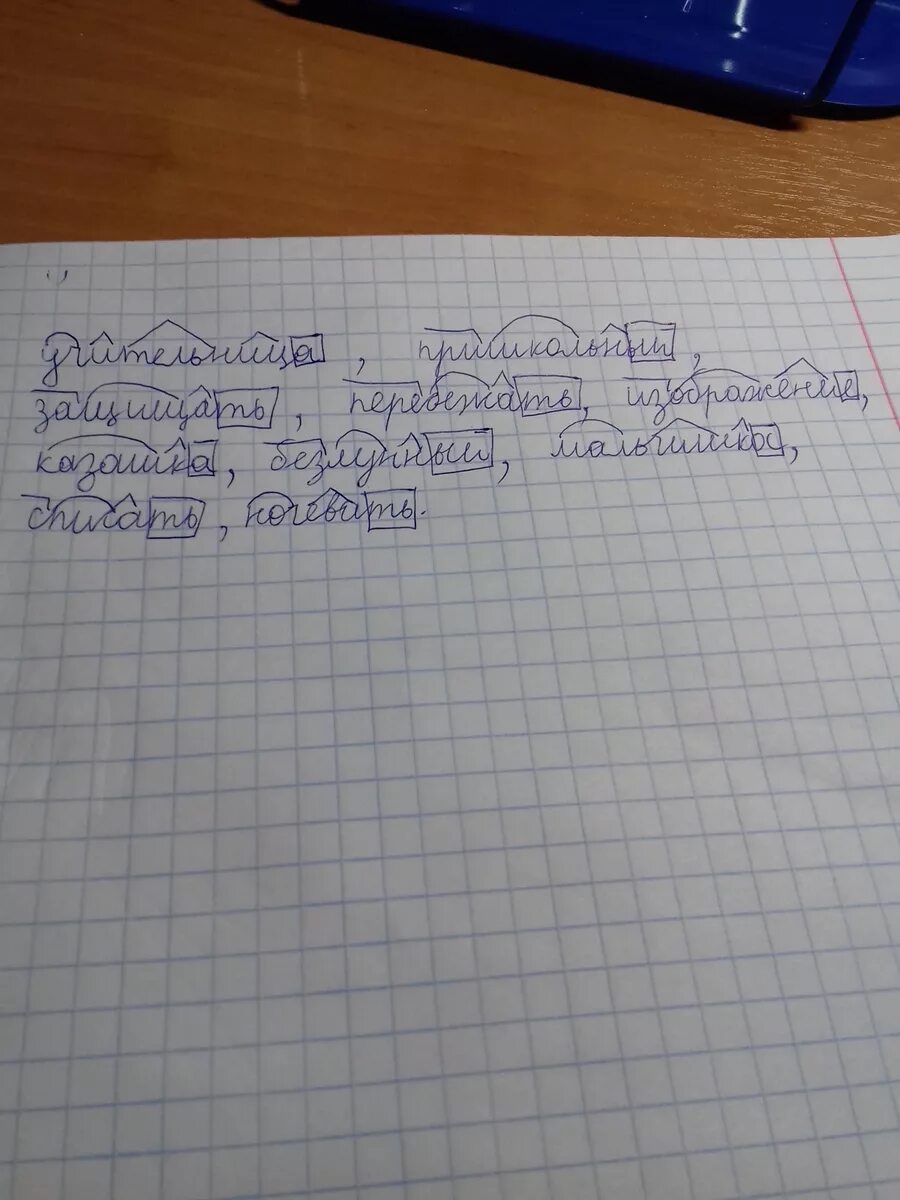 учительница, пришкольный,
защищать, перебежать, изображение,
казашка, безлунный, малышка,
списать, ночевать.